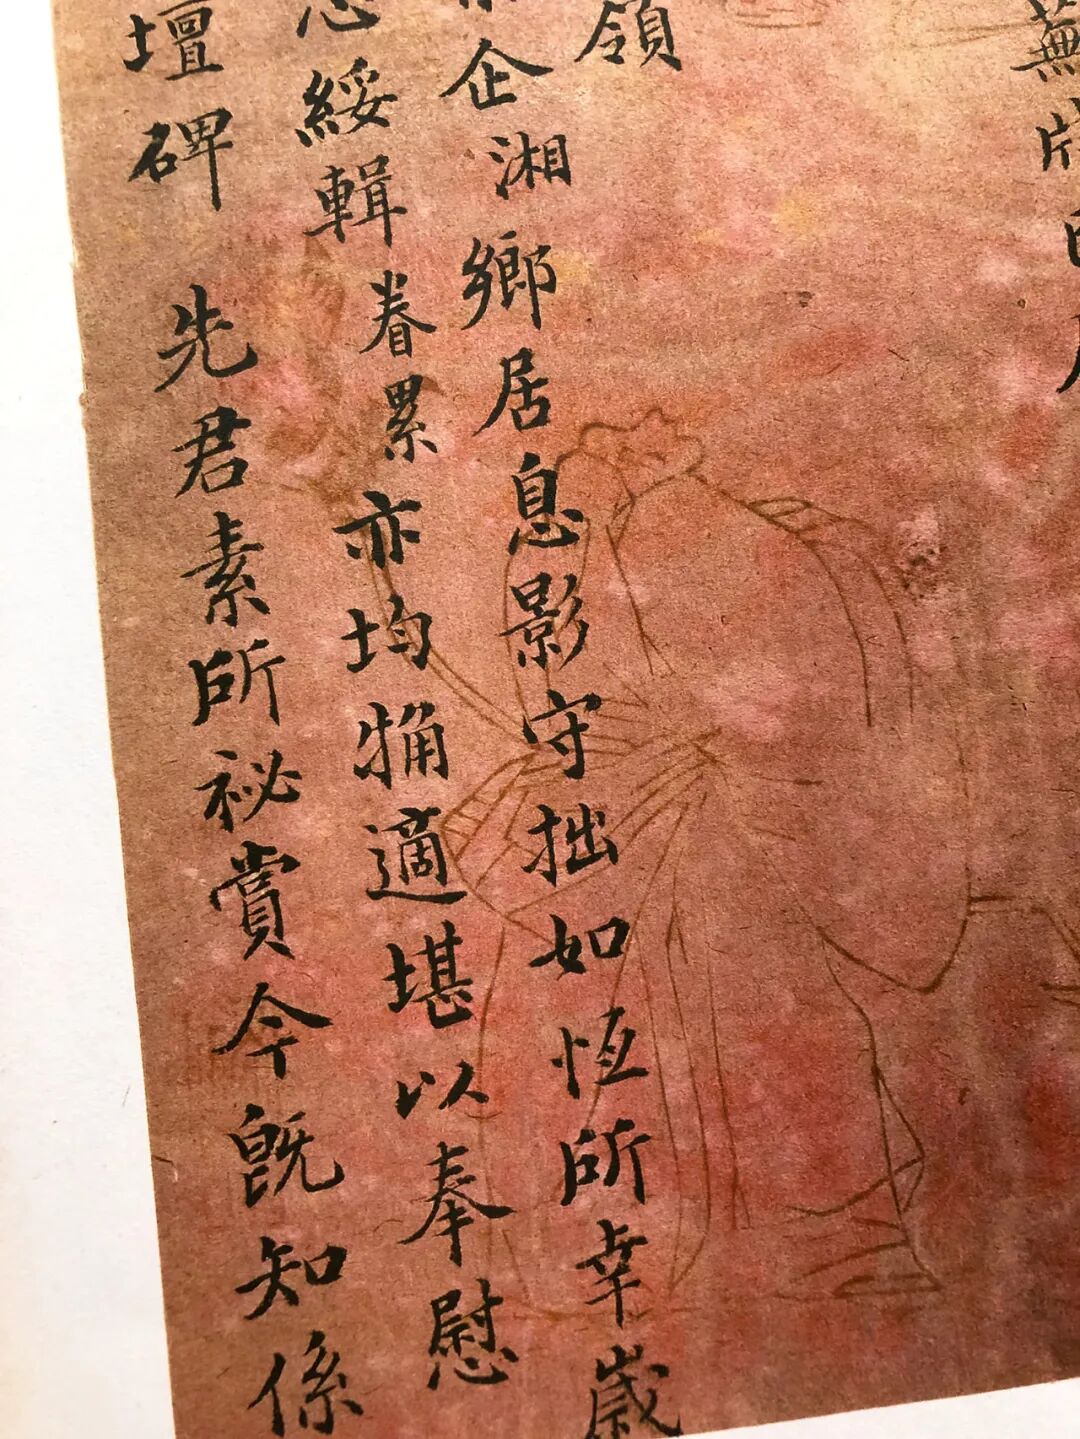 蕪
領
企湘鄉居息影守拙如恆所幸歲
綏輯眷累亦均觕適堪以奉慰
壇碑 先君素所祕賞今既知係